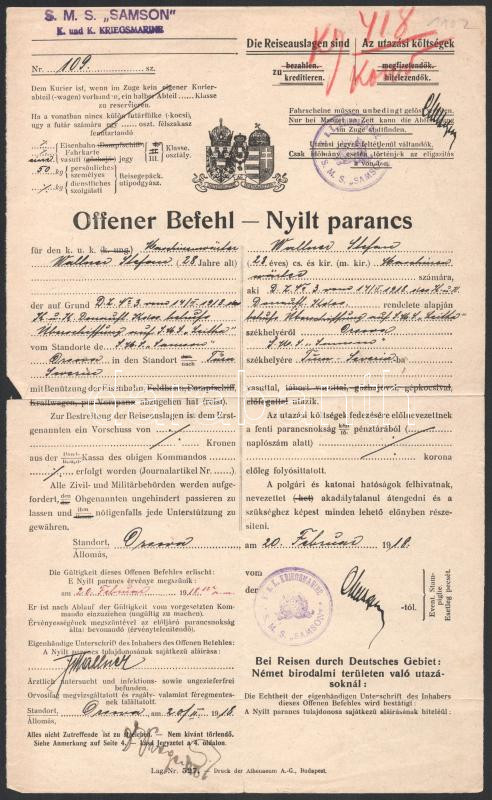 S. M. S. „SAMSON"
K. und K. KRIEGSMARINE
Kp 418
1102
Die Reiseauslagen sind | Az utazási költségek
zu bezahlen. kreditieren. | megfizetendők. hitelezendők.
Nr. 109. sz.
Dem Kurier ist, wenn im Zuge kein eigener Kurier-
abteil (-wagen) vorhanden, ein halbes Abteil Klasse
zu reservieren.
Ha a vonatban nincs külön futárfülke (kocsi),
ugy a futár számára egy oszt. félszakasz
fenntartandó
Eisenbahn Dampfschiff-
Fahrkarte
vasuti (gőzhajó) jegy
III. Klasse,
osztály.
50 kg (persönliches
személyes
kg (dienstliches
szolgálati
Reisegepäck.
utipodgyász.
Fahrscheine müssen unbedingt gelöst
Nur bei Mangel an Zeit kann die Abfertigung
im Zuge stattfinden.
Utazási jegyek feltétlenül váltandók.
Csak időhiány esetén történjek az eligazitás
S. M. S. „SAMSON"
Offener Befehl — Nyilt parancs
für den k. u. k. (k. ung.) Maschinenwärter
Wallner Stefan (28 Jahre alt)
der auf Grund D.Z. № 3 vom 14/II. 1918 des
K. u. K. Donaufl. Kdos. behufs
Überschiffung auf S.M.S. „Leitha"
vom Standorte de S.M.S. „Samson"
Orsova in den Standort nach Turn
Severin
mit Benützung der Eisenbahn, Feldbahn, Dampfschiff,
Kraftwagen, per Vorspann abzugehen hat (reist).
Zur Bestreitung der Reiseauslagen ist dem Erst-
genannten ein Vorschuss von
Kronen
aus der Kassa des obigen Kommandos
erfolgt worden (Journalartikel Nr. ).
Alle Zivil- und Militärbehörden werden aufge-
fordert, den Obgenannten ungehindert passieren zu
lassen und ihm nötigenfalls jede Unterstützung zu
gewähren.
Wallner Stefan
(28 éves) cs. és kir. (m. kir.) Maschinen
wärter számára,
aki D.Z. № 3 vom 14/II. 1918 des K. u. K.
Donaufl. Kdos. rendelete alapján
behufs Überschiffung auf S.M.S. „Leitha"
székhelyéről Orsova
S.M.S. „Samson"
székhelyére Turn-Severin ba
vasuttal, tábori vasuttal, gőzhajóval, gépkocsival,
előfogattal utazik.
Az utazási költségek fedezésére előlegezvettnek
a fenti parancsnokság pénztárából (
naplószám alatt)
korona
előleg folyósittatott.
A polgári és katonai hatóságok felhivatnak,
nevezettet (-ket) akadálytalanul átengedni és a
szükséghez képest minden lehető előnyben része-
siteni.
Standort, Orsova am 20. Februar 1918.
Állomás,
Die Gültigkeit dieses Offenen Befehles erlischt:
E Nyilt parancs érvénye megszünik:
am 28. Februar 1918
Er ist nach Ablauf der Gültigkeit vom vorgesetzten Kom-
mando einzuziehen (ungültig zu machen).
Érvényességének megszüntével az előljáró parancsnokság
által bevonandó (érvénytelenitendő).
Eigenhändige Unterschrift des Inhabers des Offenen Befehles:
A Nyilt parancs tulajdonosa sajátkezű aláirása:
Wallner
Ärztlich untersucht und infektions- sowie ungezieferfrei
befunden.
Orvosilag megvizsgáltatott és ragály- valamint féregmentes-
nek találtatott.
Standort, Orsova am 20/II 1918.
Állomás,
Alles nicht Zutreffende ist zu streichen. — Nem kivánt törlendő.
Siehe Anmerkung auf Seite 4. — Lásd Jegyzetet a 4. oldalon.
von
der
a
-tól.
K. u. K. KRIEGSMARINE
S. M. S. „SAMSON"
Event. Stam-
piglie.
Esetleg pecsét.
Bei Reisen durch Deutsches Gebiet:
Német birodalmi területen való utazá-
soknál:
Die Echtheit der eigenhändigen Unterschrift des Inhabers
dieses Offenen Befehles wird bestätigt:
A Nyilt parancs tulajdonosa sajátkezű aláirásának hiteléül:
Lag.-Nr. 527. — Druck der Athenaeum A.-G., Budapest.